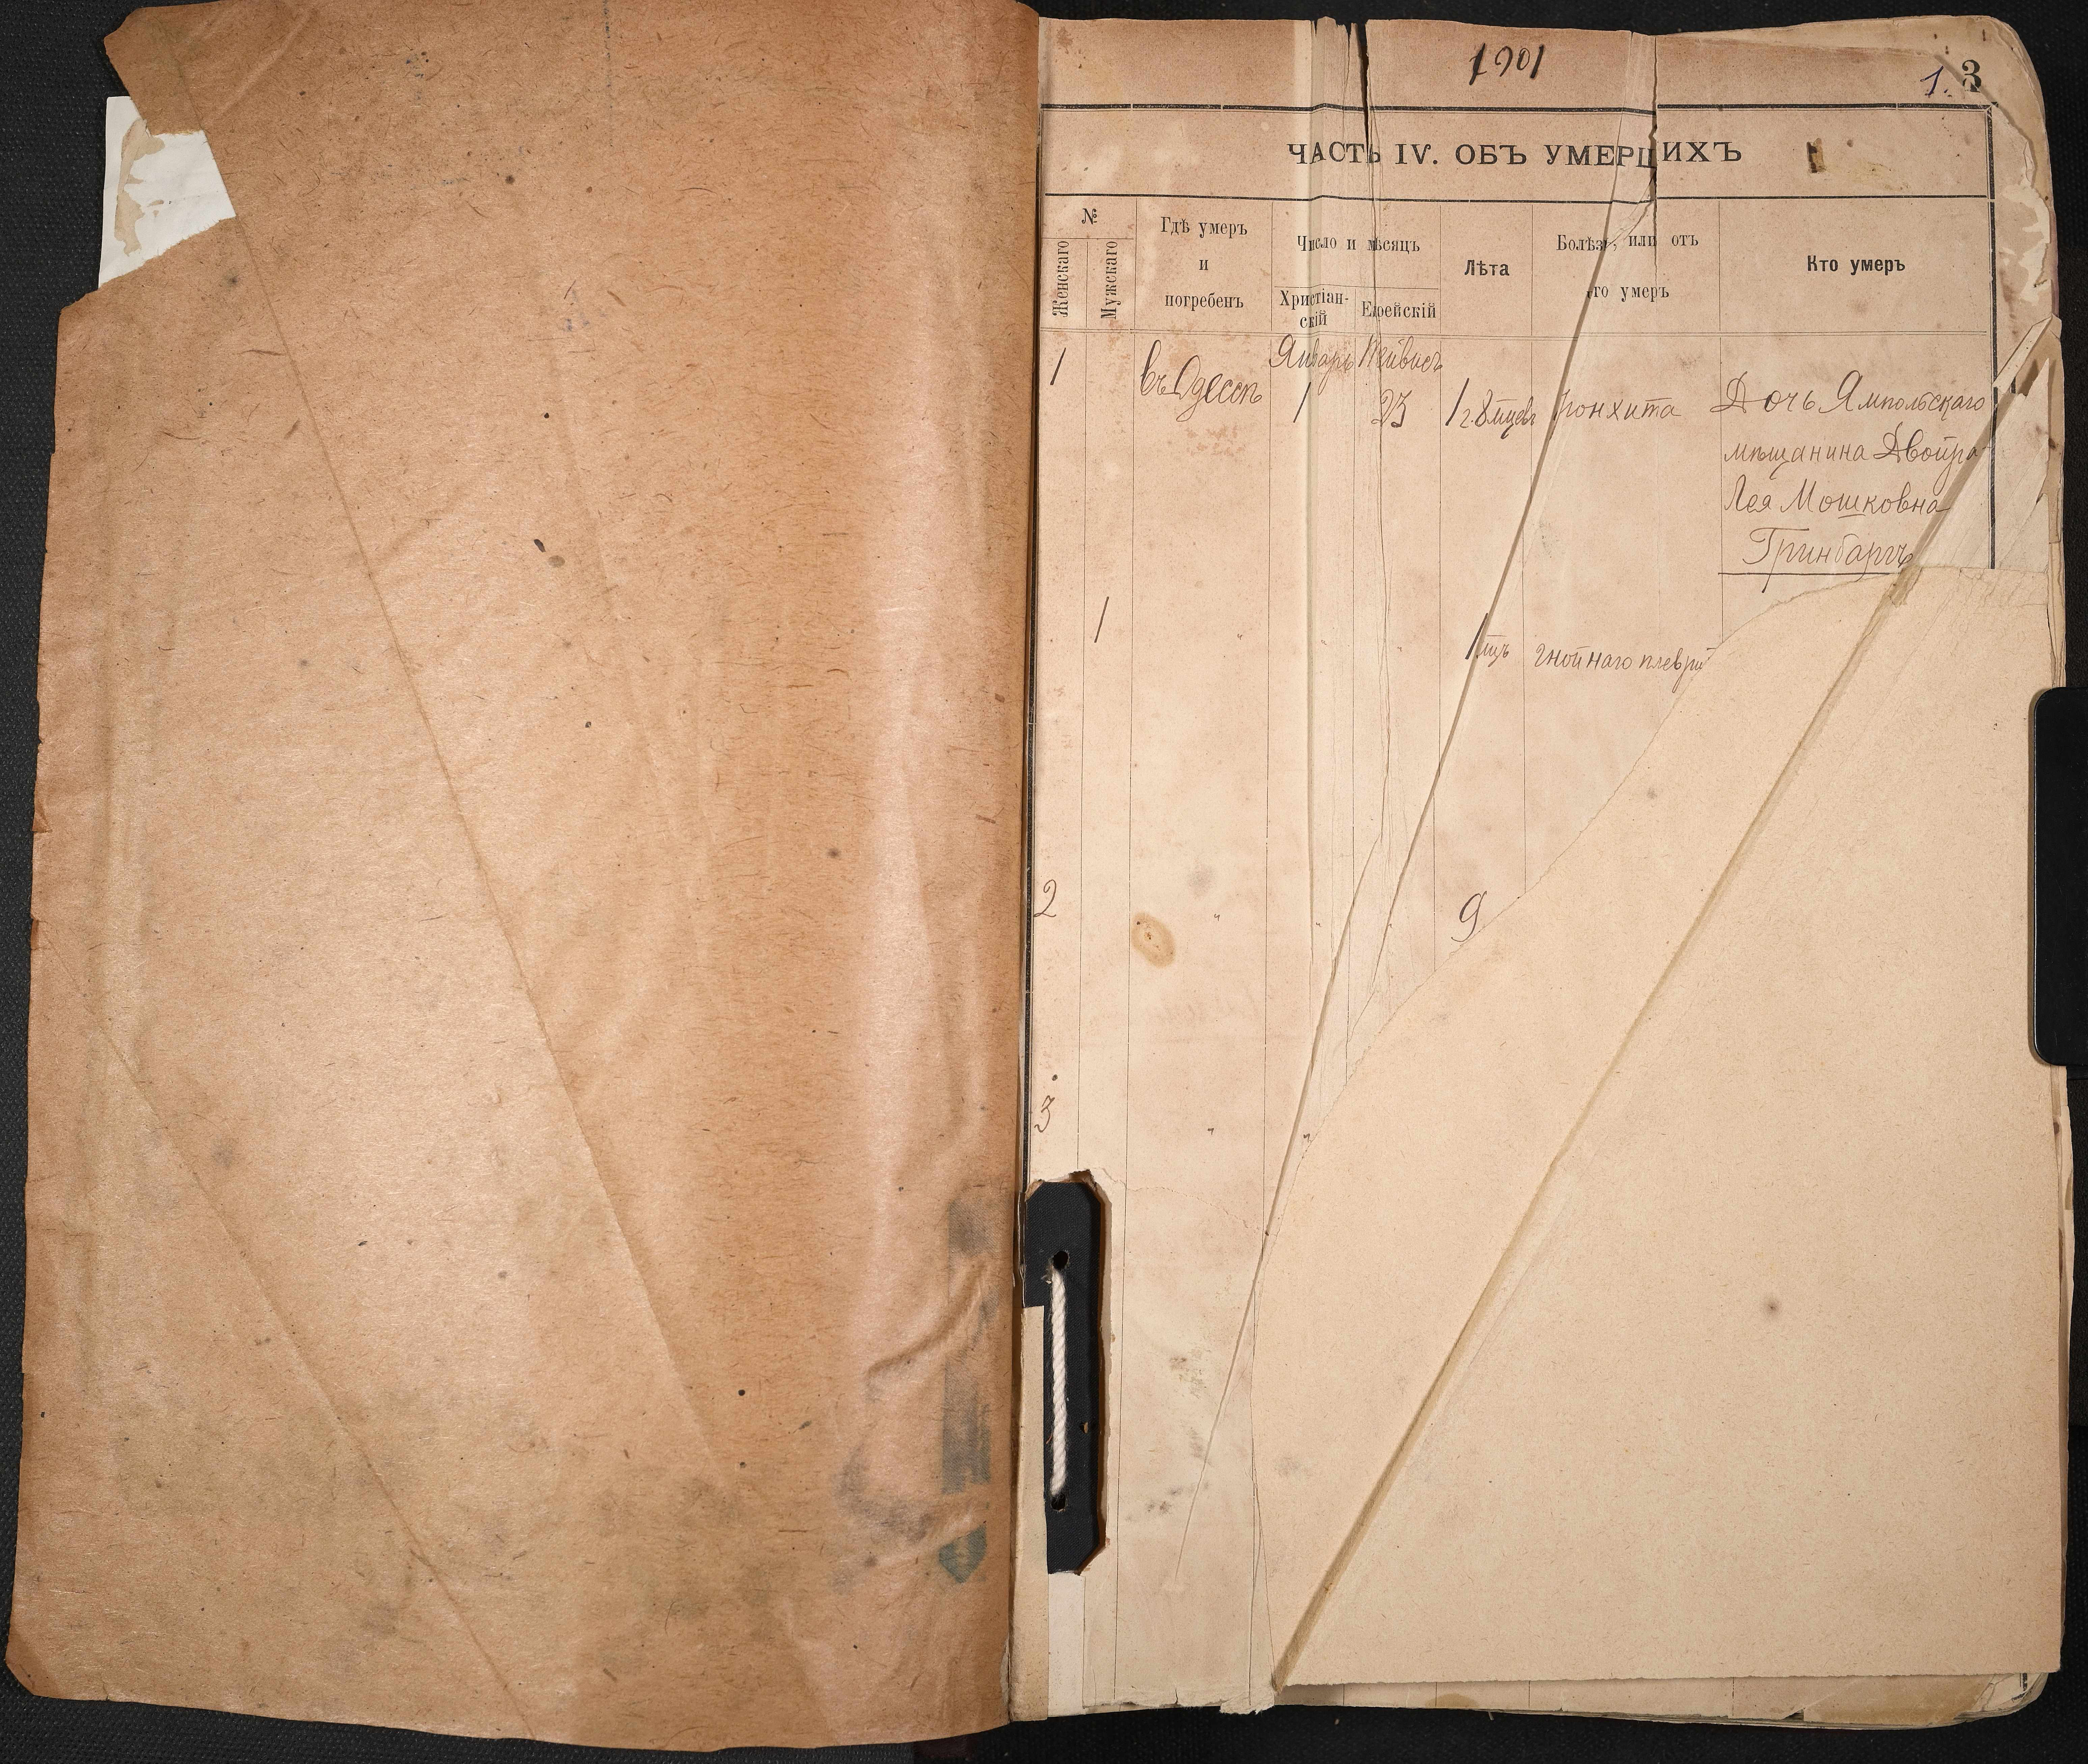 1901
1. 3
ЧАСТЬ IV. ОБЪ УМЕРШИХЪ
№
Женскаго
Мужскаго
Гдѣ умеръ
и
погребенъ
Число и мѣсяцъ
Христіан-
скій
Еврейскій
Лѣта
Болѣзнь, или отъ
чего умеръ
Кто умеръ
Январь Тейвисъ
1 въ Одессѣ 1 23 1 г. 8 мцевъ бронхита Дочь Ямпольскаго
мѣщанина Двойра
Лея Мошковна
Гринбаргъ
1 " " " 1 мцъ гнойнаго плеври
2 " " " 9
3 " "